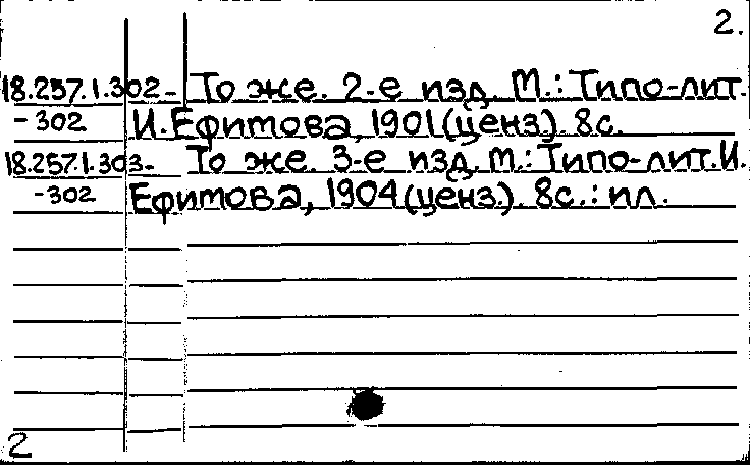 2.
18.257.1.302- То же. 2-е изд. М.: Типо-лит.
-302 И. Ефимова, 1901 (ценз). 8с.
18.257.1.303- То же. 3-е изд. М.: Типо-лит. И.
-302 Ефимова, 1904 (ценз.). 8с.: ил.
2